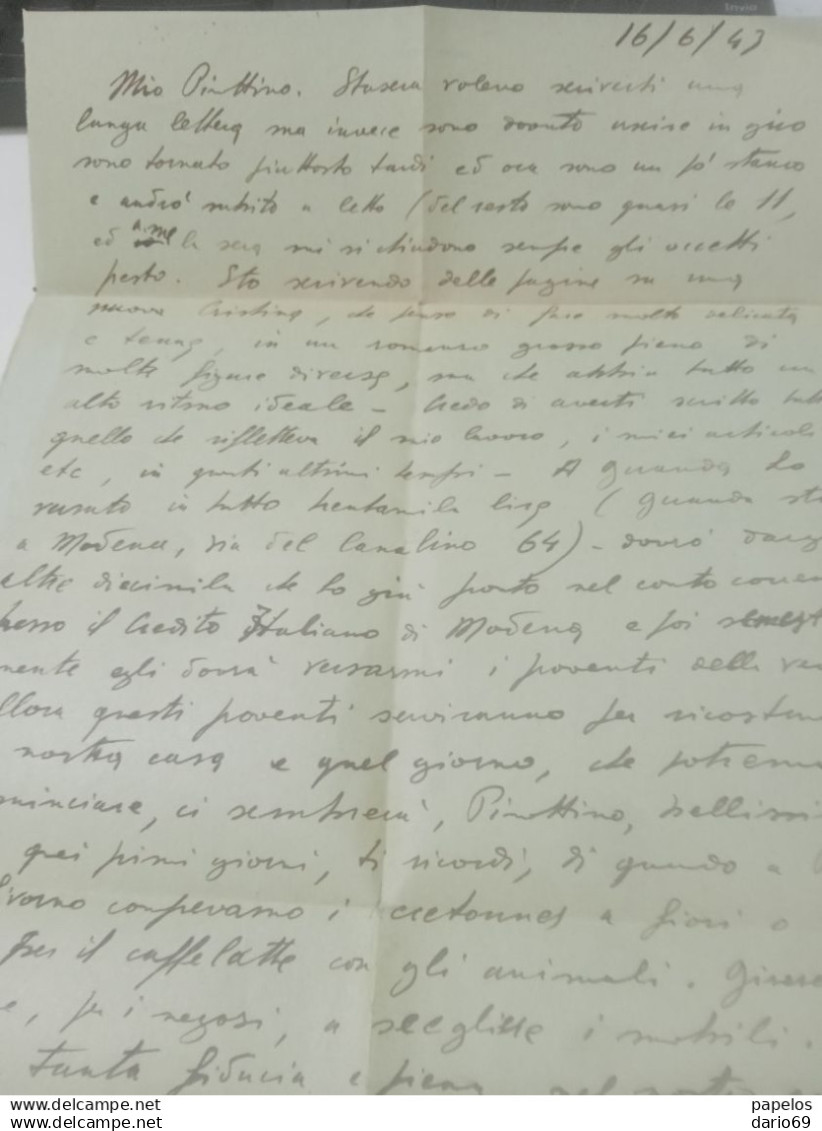 Invio
16/6/43
Mio Pinottino. Stasera volevo scriverti una
lunga lettera ma invece sono dovuto uscire in giro
sono tornato piuttosto tardi ed ora sono un pò stanco
e andrò subito a letto (del resto sono quasi le 11,
ed a me la sera mi si chiudono sempre gli occhi
presto. Sto scrivendo delle pagine su una
nuova Cristina, che penso di fare molto delicata
e tenue, in un romanzo grosso pieno di
molte figure diverse, ma che abbia tutto un
alto ritmo ideale - Credo di averti scritto tutto
quello che rifletteva il mio lavoro, i miei articoli
etc, in questi ultimi tempi - A Guanda ho
versato in tutto trentamila lire (Guanda sta
a Modena, via del Canalino 64) - dovrò
altre diecimila che ho già pronto nel conto
presso il Credito Italiano di Modena e poi
mente egli dovrà versarmi i proventi della
allora questi proventi serviranno per
nostra casa e quel giorno, che
ci sembrerà, Pinottino,
quei primi giorni, ti ricordi, di quando a
Livorno compravamo i cretonnes a fiori o
per il caffelatte con gli animali.
per i negozi, a scegliere i mobili.
tanta fiducia e piena nel
papelos
dario69